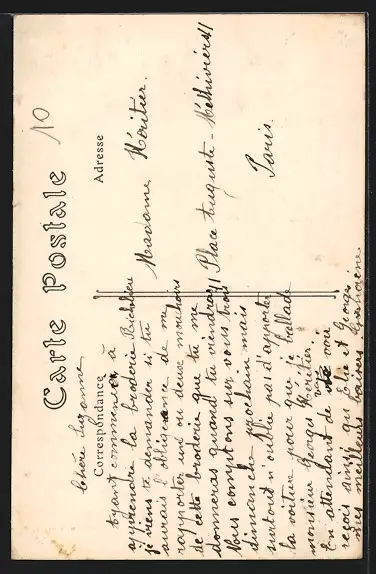 Carte Postale
10
Correspondance
Adresse
Chère Suzanne
Ayant commencer à
apprendre la broderie Richelieu
je viens te demander si tu
aurais l'obligeance de me
rapporter un ou deux mouchoirs
de cette broderie que tu me
donneras quand tu viendras
Nous comptons sur vous trois
dimanche prochain mais
surtout n'oublie pas d'apporter
la voiture pour que je ballade
monsieur Georges Héritier.
En attendant de vous voir
reçois ainsi qu'Ela et Georges
mes meilleurs baisers
Madame Héritier.
11 Place Auguste-Méthivier 11
Paris